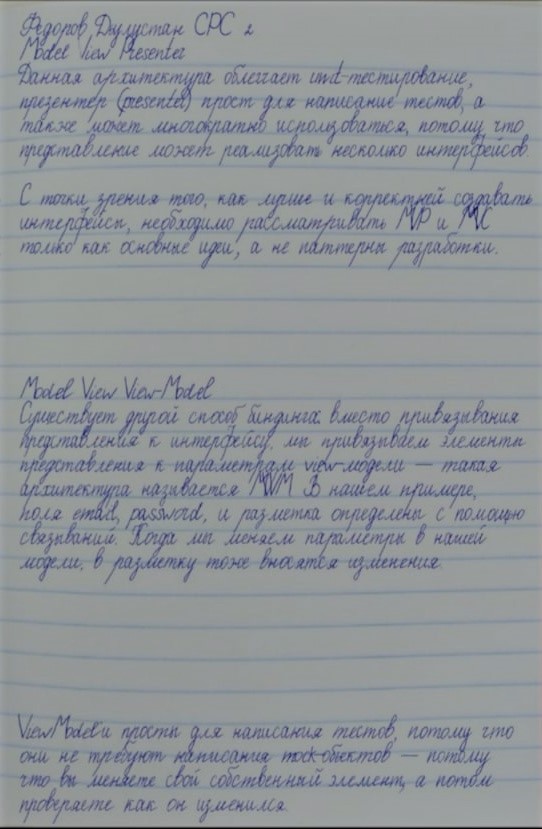 Федоров Дулустан СРС 2
Model View Presenter
Данная архитектура облегчает unit-тестирование,
презентер (presenter) прост для написание тестов, а
также может многократно использоваться, потому что
представление может реализовать несколько интерфейсов.
С точки зрения того, как лучше и корректней создавать
интерфейсы, необходимо рассматривать MVP и MVC
только как основные идеи, а не паттерны разработки.
Model View View-Model
Существует другой способ биндинга: вместо привязывания
представления к интерфейсу, мы привязываем элементы
представления к параметрам view-модели — такая
архитектура называется MVVM. В нашем примере,
поля email, password, и разметка определены с помощью
связываний. Когда мы меняем параметры в нашей
модели, в разметку тоже вносятся изменения.
ViewModel'и просты для написания тестов, потому что
они не требуют написания mock-объектов — потому
что вы меняете свой собственный элемент, а потом
проверяете как он изменился.